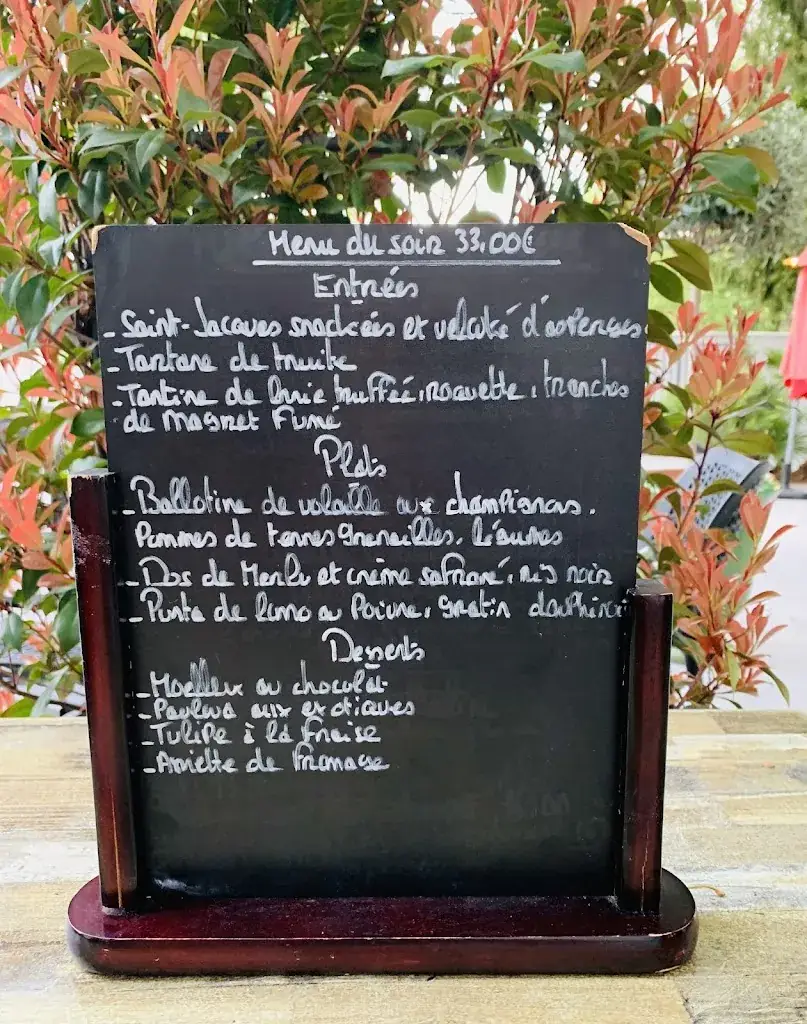 Menu du soir 33,00€
Entrées
- Saint-Jacques snackées et velouté d'asperges
- Tartare de truite
- Tartine de brie truffée, roquette, tranches
de magret fumé
Plats
- Ballotine de volaille aux champignons.
Pommes de terres grenailles, légumes
- Dos de Merlu et crème safrané, riz noir
- Punta de lomo au Poivre, gratin dauphinois
Desserts
- Moelleux au chocolat
- Pavlova aux exotiques
- Tulipe à la fraise
- Assiette de fromage